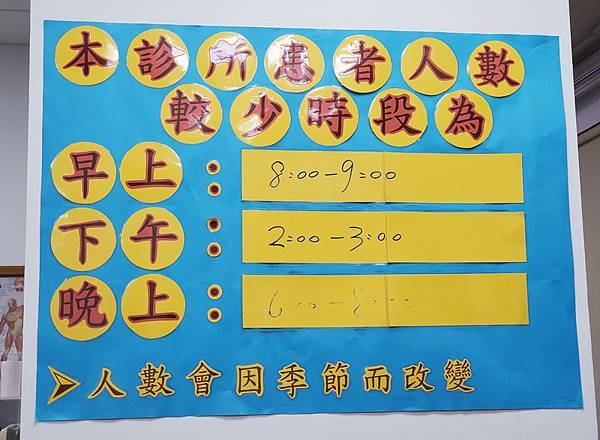 本診所患者人數
較少時段為
早上：8:00-9:00
下午：2:00-3:00
晚上：6:00-8:00
➤人數會因季節而改變